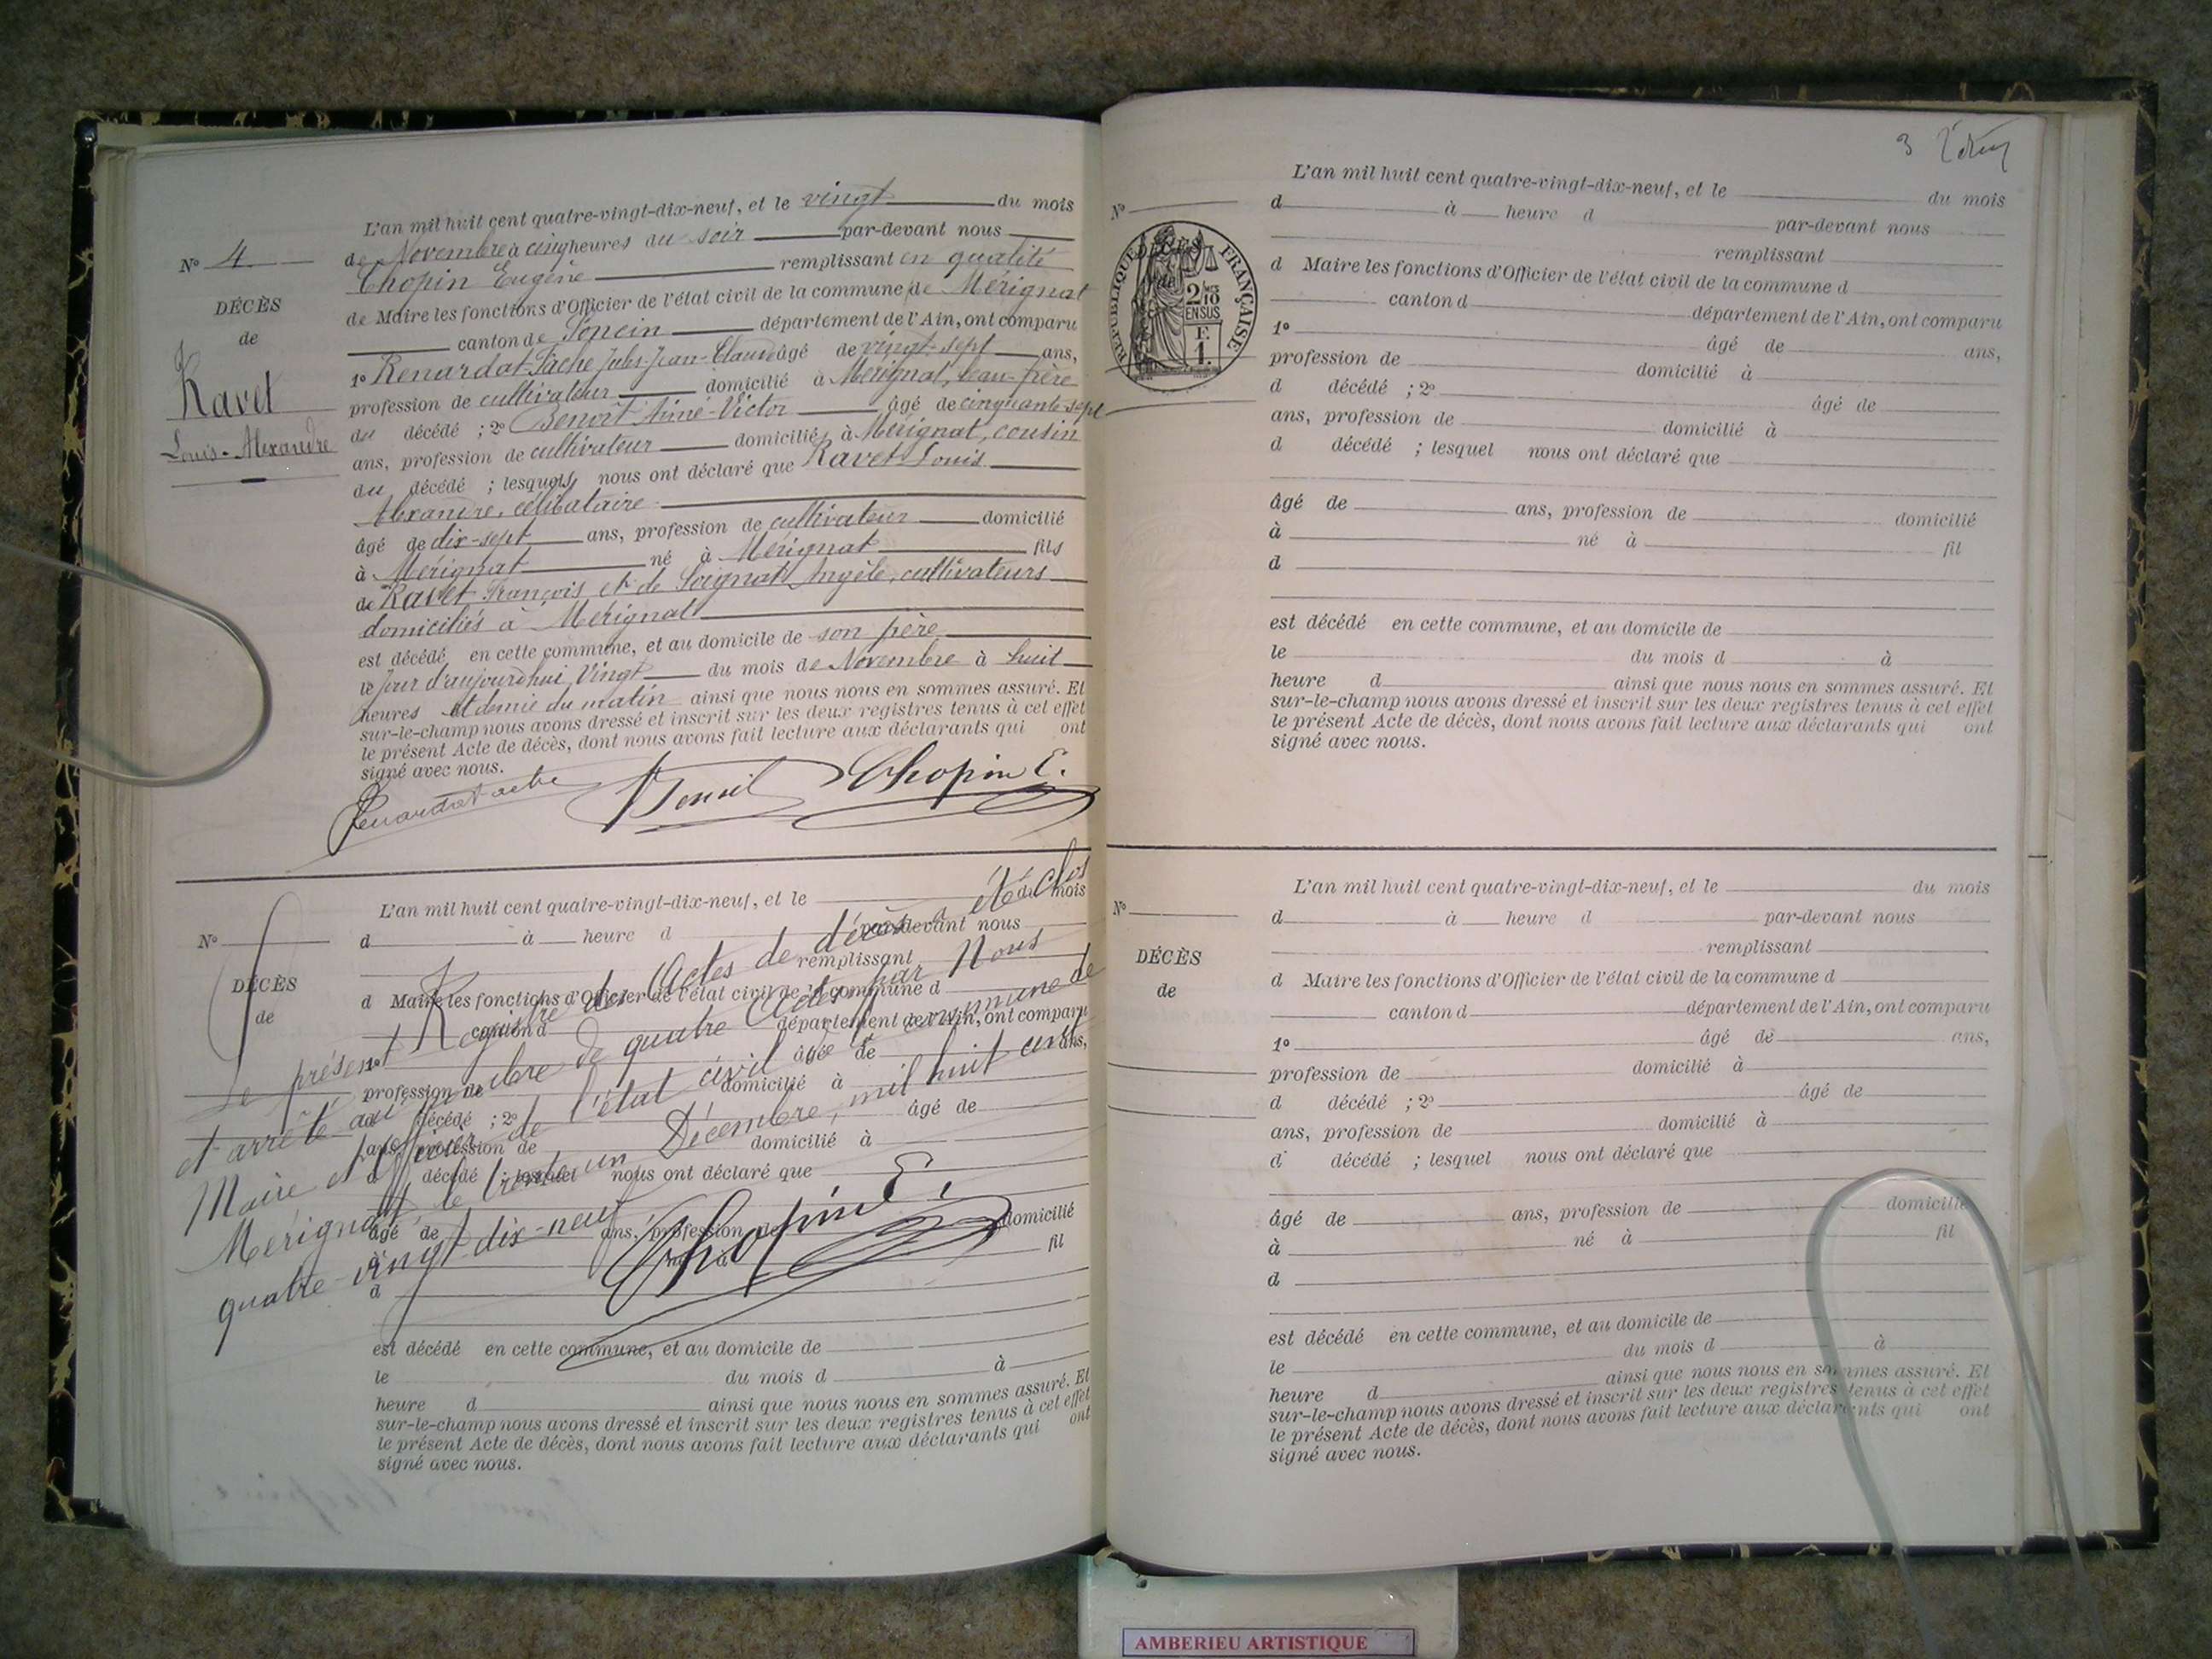 N° 4
DÉCÈS
de
Ravet
Louis-Alexandre
L'an mil huit cent quatre-vingt-dix-neuf, et le vingt du mois
de Novembre à cinq heures du soir par-devant nous
Chopin Eugène remplissant en qualité
de Maire les fonctions d'Officier de l'état civil de la commune de Mérignat
canton de Poncin département de l'Ain, ont comparu
1° Renardat-Fache Jules-Jean-Claude âgé de vingt-sept ans,
profession de cultivateur domicilié à Mérignat, beau-frère
du décédé ; 2° Benoît Aimé-Victor âgé de cinquante-sept
ans, profession de cultivateur domiciliés à Mérignat, cousin
du décédé ; lesquels nous ont déclaré que Ravet Louis
Alexandre, célibataire
âgé de dix-sept ans, profession de cultivateur domicilié
à Mérignat né à Mérignat fils
de Ravet François et de Angèle, cultivateurs
domiciliés à Mérignat
est décédé en cette commune, et au domicile de son père
le jour d'aujourdhui Vingt du mois de Novembre à huit
heures et demie du matin ainsi que nous nous en sommes assuré. Et
sur-le-champ nous avons dressé et inscrit sur les deux registres tenus à cet effet
le présent Acte de décès, dont nous avons fait lecture aux déclarants qui ont
signé avec nous.
Renardat Fache Benoit Chopin E.
L'an mil huit cent quatre-vingt-dix-neuf, et le du mois
N° d à heure d par-devant nous
remplissant
DÉCÈS
de
d Maire les fonctions d'Officier de l'état civil de la commune d
canton d département de l'Ain, ont comparu
1° âgé de ans,
profession de domicilié à
d décédé ; 2° âgé de
ans, profession de domicilié à
d décédé ; lesquel nous ont déclaré que
âgé de ans, profession de domicilié
à né à fil
d
est décédé en cette commune, et au domicile de
le du mois d à
heure d ainsi que nous nous en sommes assuré. Et
sur-le-champ nous avons dressé et inscrit sur les deux registres tenus à cet effet
le présent Acte de décès, dont nous avons fait lecture aux déclarants qui ont
signé avec nous.
Le présent Registre des Actes de décès a été clos
et arrêté au nombre de quatre Actes par Nous
Maire et Officier de l'état civil de la commune de
Mérignat, le trente un Décembre, mil huit cent
quatre-vingt-dix-neuf
Chopin E.
3
N°
DÉCÈS
de
RÉPUBLIQUE FRANÇAISE
2/10 EN SUS
F.
1.
L'an mil huit cent quatre-vingt-dix-neuf, et le du mois
d à heure d par-devant nous
remplissant
d Maire les fonctions d'Officier de l'état civil de la commune d
canton d département de l'Ain, ont comparu
1° âgé de ans,
profession de domicilié à
d décédé ; 2° âgé de
ans, profession de domicilié à
d décédé ; lesquel nous ont déclaré que
âgé de ans, profession de domicilié
à né à fil
d
est décédé en cette commune, et au domicile de
le du mois d à
heure d ainsi que nous nous en sommes assuré. Et
sur-le-champ nous avons dressé et inscrit sur les deux registres tenus à cet effet
le présent Acte de décès, dont nous avons fait lecture aux déclarants qui ont
signé avec nous.
N°
DÉCÈS
de
L'an mil huit cent quatre-vingt-dix-neuf, et le du mois
d à heure d par-devant nous
remplissant
d Maire les fonctions d'Officier de l'état civil de la commune d
canton d département de l'Ain, ont comparu
1° âgé de ans,
profession de domicilié à
d décédé ; 2° âgé de
ans, profession de domicilié à
d décédé ; lesquel nous ont déclaré que
âgé de ans, profession de domicilié
à né à fil
d
est décédé en cette commune, et au domicile de
le du mois d à
heure d ainsi que nous nous en sommes assuré. Et
sur-le-champ nous avons dressé et inscrit sur les deux registres tenus à cet effet
le présent Acte de décès, dont nous avons fait lecture aux déclarants qui ont
signé avec nous.
AMBERIEU ARTISTIQUE